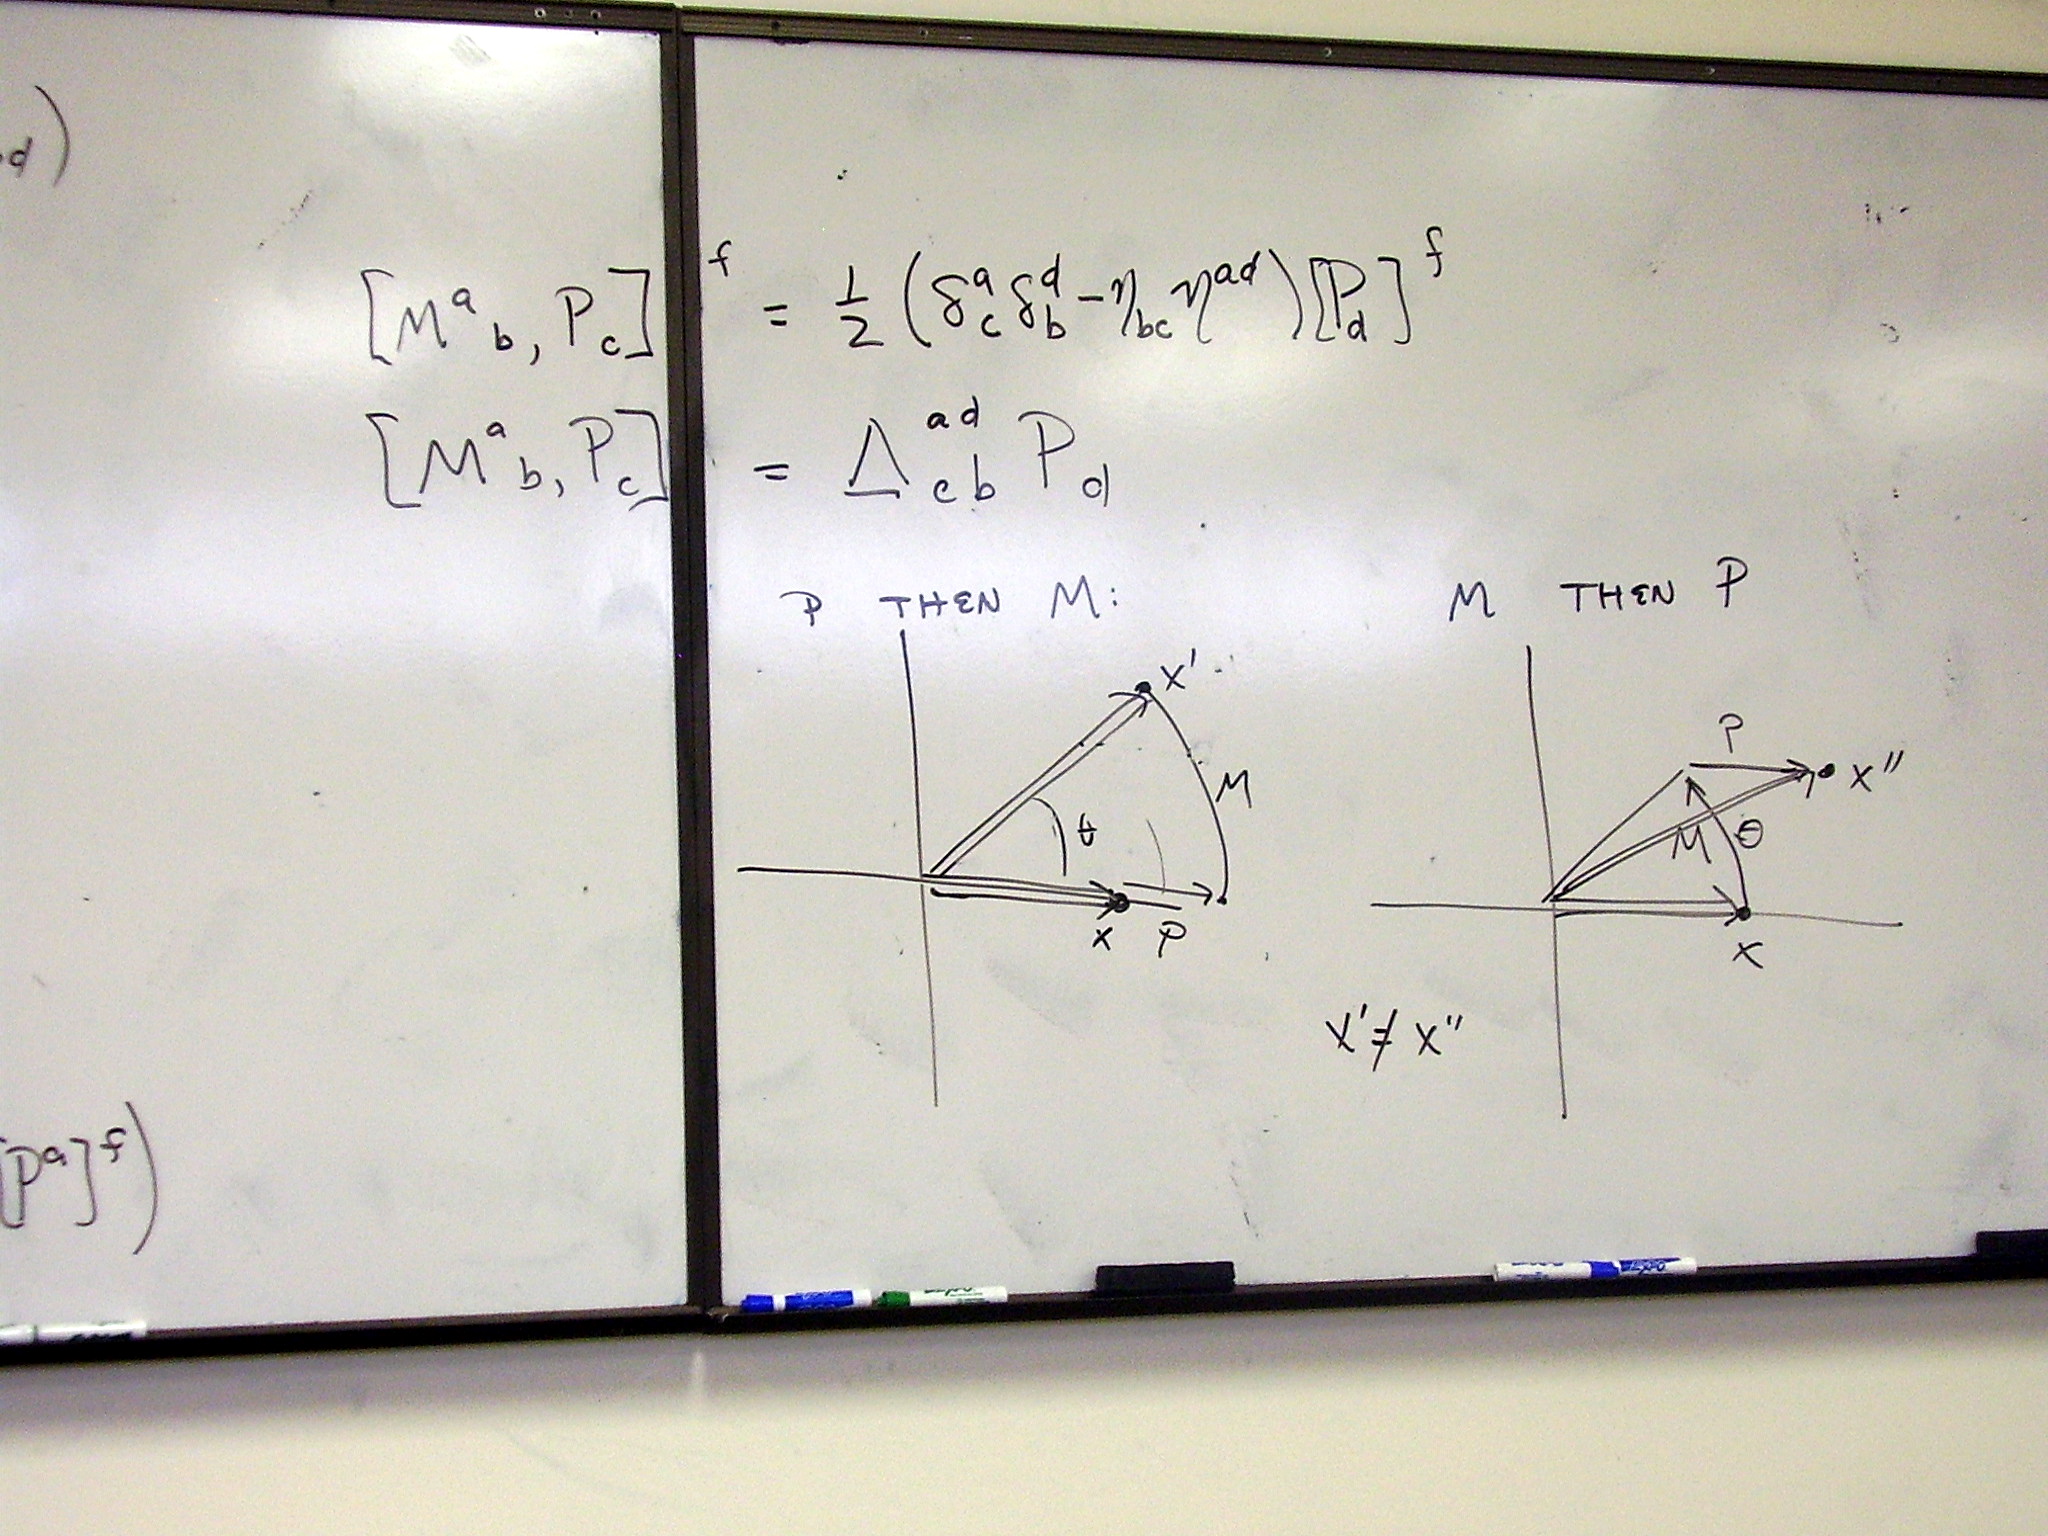 d)
[Mᵃ_b, P_c]^f = 1/2 (δ^a_c δ^d_b - η_bc η^ad) [P_d]^f
[M^a_b, P_c] = Δ^ad_cb P_d
P THEN M:
M THEN P
X'
M
θ
X P
P
X"
M θ
X
X' ≠ X"
[P^a]^f)